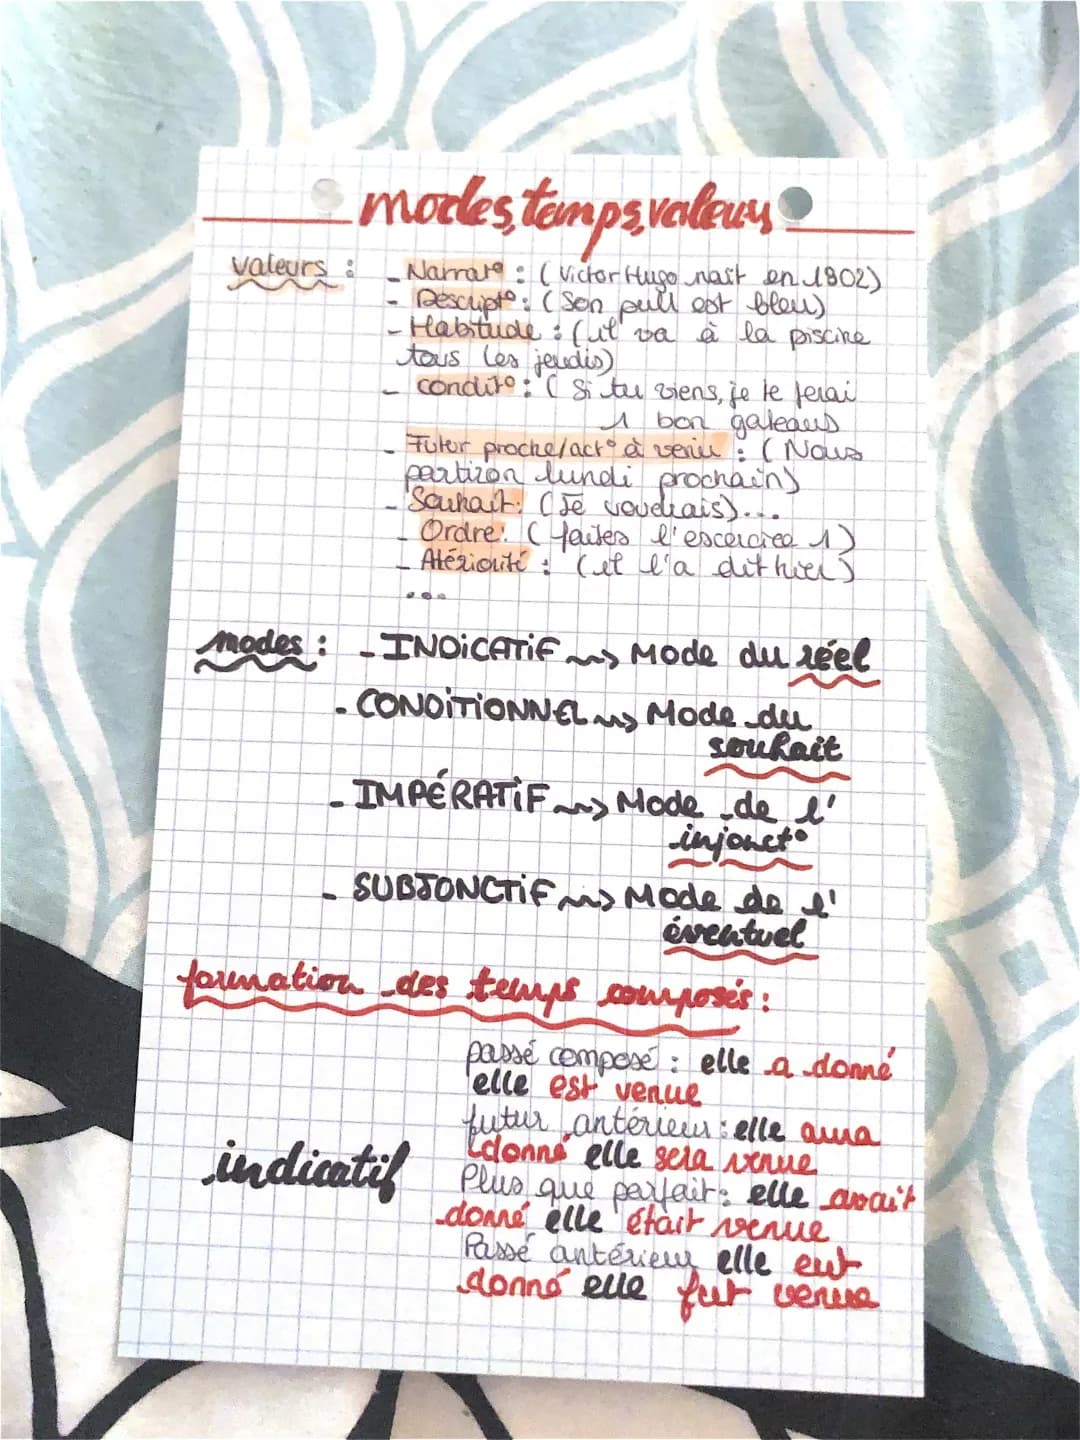 modes, temps, valeurs
valeurs : - Narrat° : ( Victor Hugo nait en 1802)
- Descript° : ( Son pull est bleu)
- Habitude : ( il va à la piscine
tous les jeudis)
- condit° : ( Si tu viens, je te ferai
1 bon gateaus
- Futur proche/act° à venir : ( Nous
partizon lundi prochain)
- Souhait : ( Je voudrais)...
- Ordre : ( faites l'escercice 1)
- Atériorité : ( il l'a dit hier)
...
modes : - INDICATIF ~> Mode du réel
- CONDITIONNEL ~> Mode du
souhait
- IMPÉRATIF ~> Mode de l'
injonct°
- SUBJONCTIF ~> Mode de l'
éventuel
formation des temps composés :
passé composé : elle a donné
elle est venue
futur antérieur : elle aura
donné elle sera venue
indicatif
Plus que parfait : elle avait
donné elle était venue
Passé antérieur elle eut
donné elle fut venue